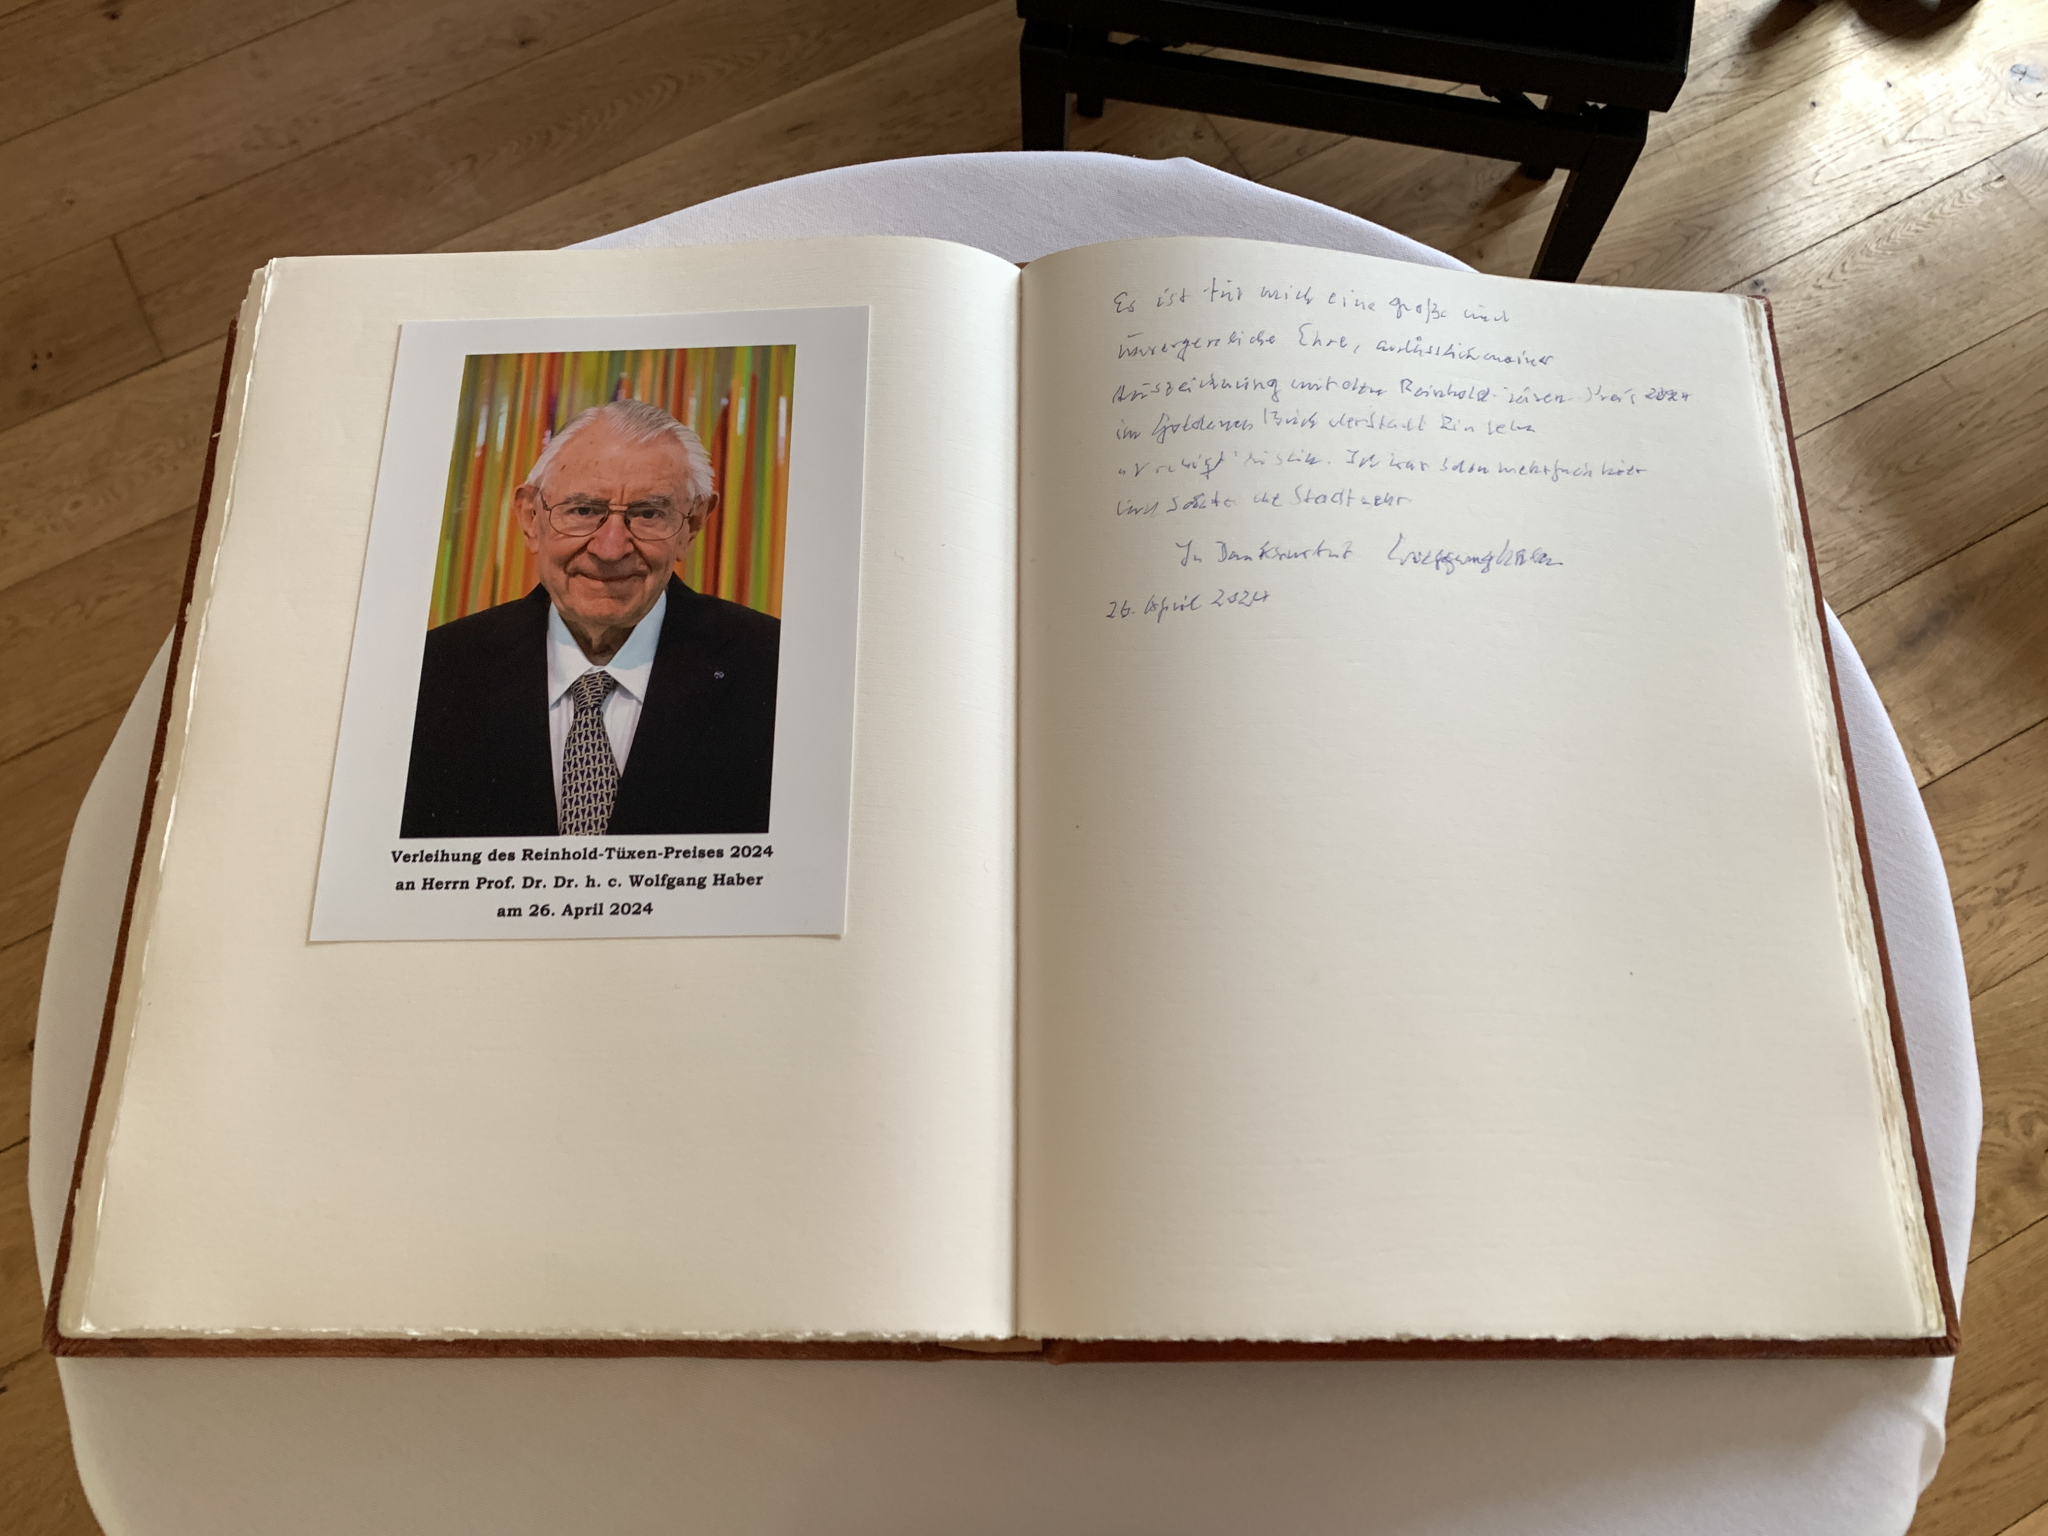 Verleihung des Reinhold-Tüxen-Preises 2024
an Herrn Prof. Dr. Dr. h. c. Wolfgang Haber
am 26. April 2024
Es ist für mich eine große und
unvergessliche Ehre, anlässlich meiner
Auszeichnung mit dem Reinhold-Tüxen-Preis 2024
im Goldenen Buch der Stadt Rinteln
zu sein. Ich war schon mehrfach hier
und schätze die Stadt sehr
In Dankbarkeit Wolfgang Haber
26. April 2024